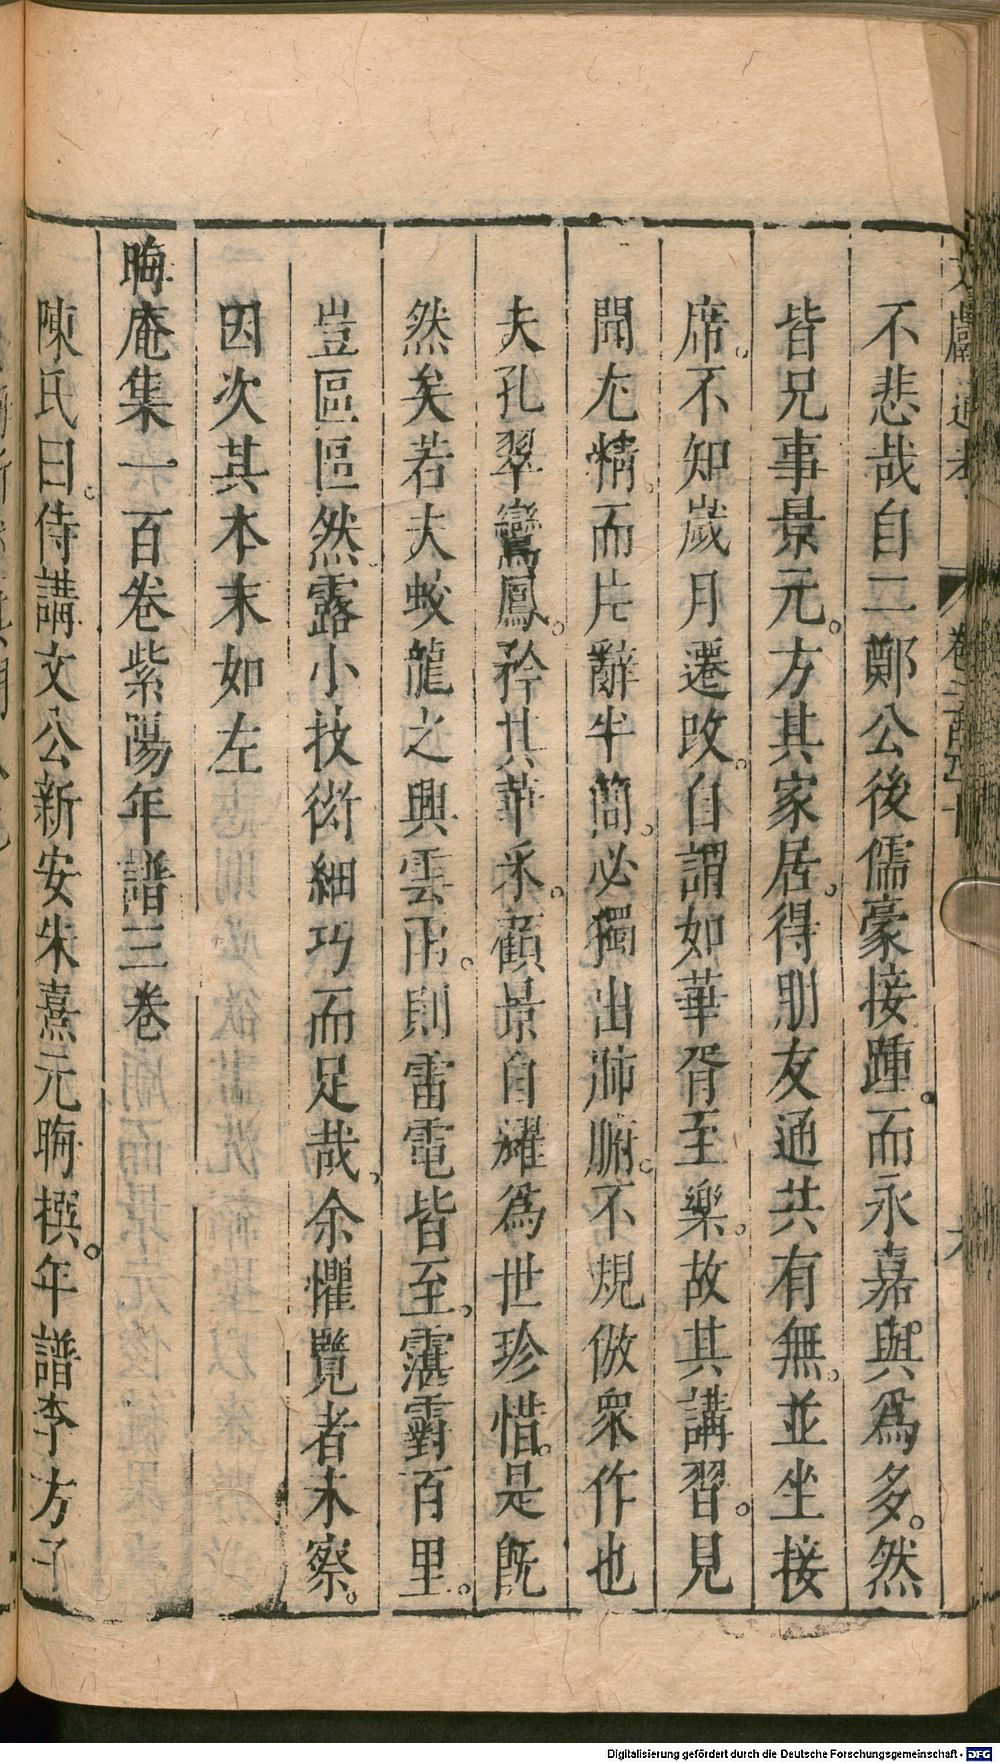 不悲哉自二鄭公後儒豪接踵。而永嘉與爲多。然
皆兄事景元。方其家居。得朋友通共有無。並坐接
席。不知歲月遷改。自謂如華胥至樂。故其講習。見
聞尤精。而片辭半簡。必獨出肺腑。不規倣衆作也
夫孔翠鸞鳳。矜其華采。顧景自耀爲世珍惜。是旣
然矣若夫蛟龍之興雲雨。則雷電皆至。霮䨴百里。
豈區區然露小技衒細巧而足哉。余懼覽者未察。
因次其本末如左
晦庵集一百卷紫陽年譜三卷
陳氏曰。侍講文公新安朱熹元晦撰。年譜李方子
文獻通考
卷二百四十
六
Digitalisierung gefördert durch die Deutsche Forschungsgemeinschaft - DFG